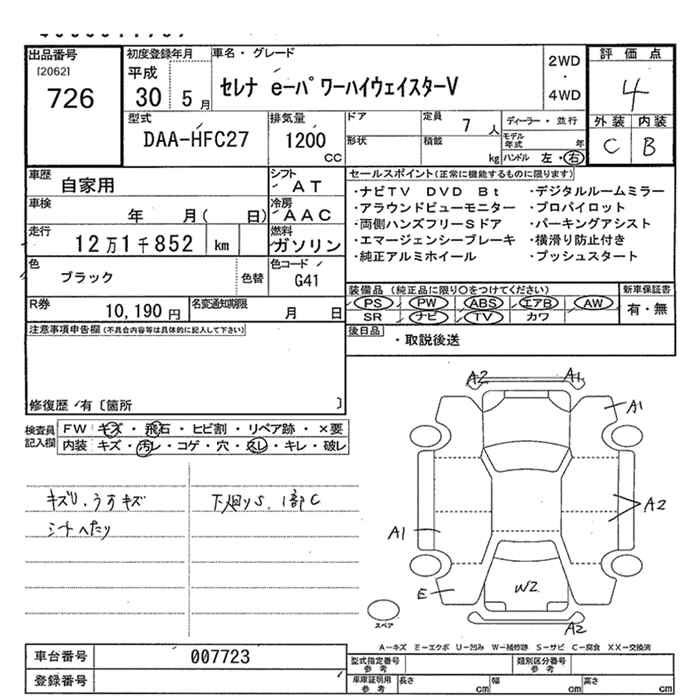 出品番号
[2062]
726
初度登録年月
平成
30 5 月
車名・グレード
セレナ e-パワーハイウェイスターV
2WD
・
4WD
評価点
4
外装 内装
C B
型式
DAA-HFC27
排気量
1200
CC
ドア
形状
定員 7 人
積載 kg
ディーラー・並行
モデル年式 年
ハンドル 左・右
車歴
自家用
シフト
AT
車検
年 月( 日)
冷房
AAC
走行
12万1千852 km
燃料
ガソリン
色
ブラック
色替
色コード
G41
R券
10,190 円
名変通知期限
月 日
セールスポイント(正常に機能するものに限ります)
・ナビTV DVD Bt ・デジタルルームミラー
・アラウンドビューモニター ・プロパイロット
・両側ハンズフリーSドア ・パーキングアシスト
・エマージェンシーブレーキ ・横滑り防止付き
・純正アルミホイール ・プッシュスタート
装備品(純正品に限り○をつけてください)
PS PW ABS エアB AW
SR ナビ TV カワ
新車保証書
有・無
後日品
・取説後送
注意事項申告欄(不具合内容等は具体的に記入して下さい)
修復歴/有〔箇所 〕
検査員記入欄
FW キズ・飛石・ヒビ割・リペア跡・×要
内装 キズ・汚レ・コゲ・穴・スレ・キレ・破レ
キズU、うすキズ
シートへたり
下廻りS、1部C
A2 A1
A1
A2
A1
E
W2
A2
スペア
A-キズ E-エクボ U-凹み W-補修跡 S-サビ C-腐食 XX-交換済
車台番号 007723
登録番号
型式指定番号参考
類別区分番号参考
車庫証明用参考
長さ cm 幅 cm 高さ cm